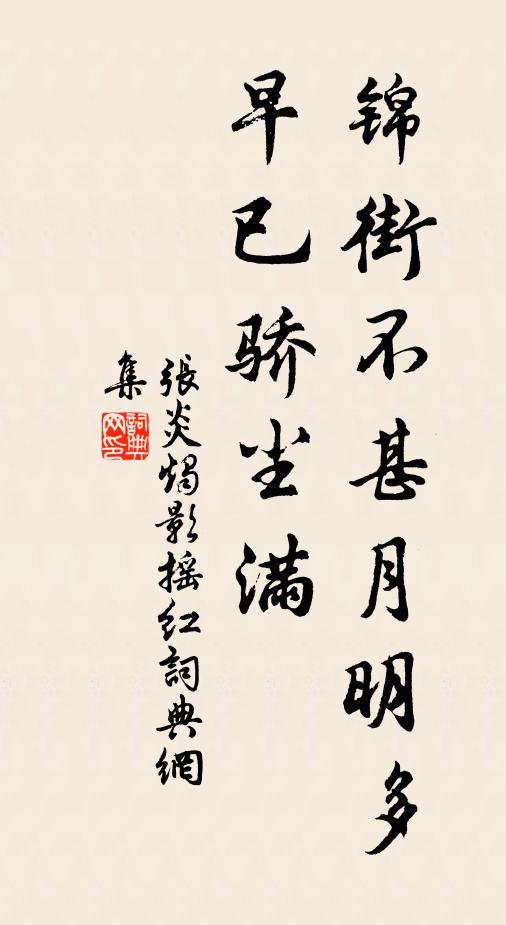 锦街不甚月明多
早已骄尘满
張炎燭影摇红詞典網
集
詞典
网印